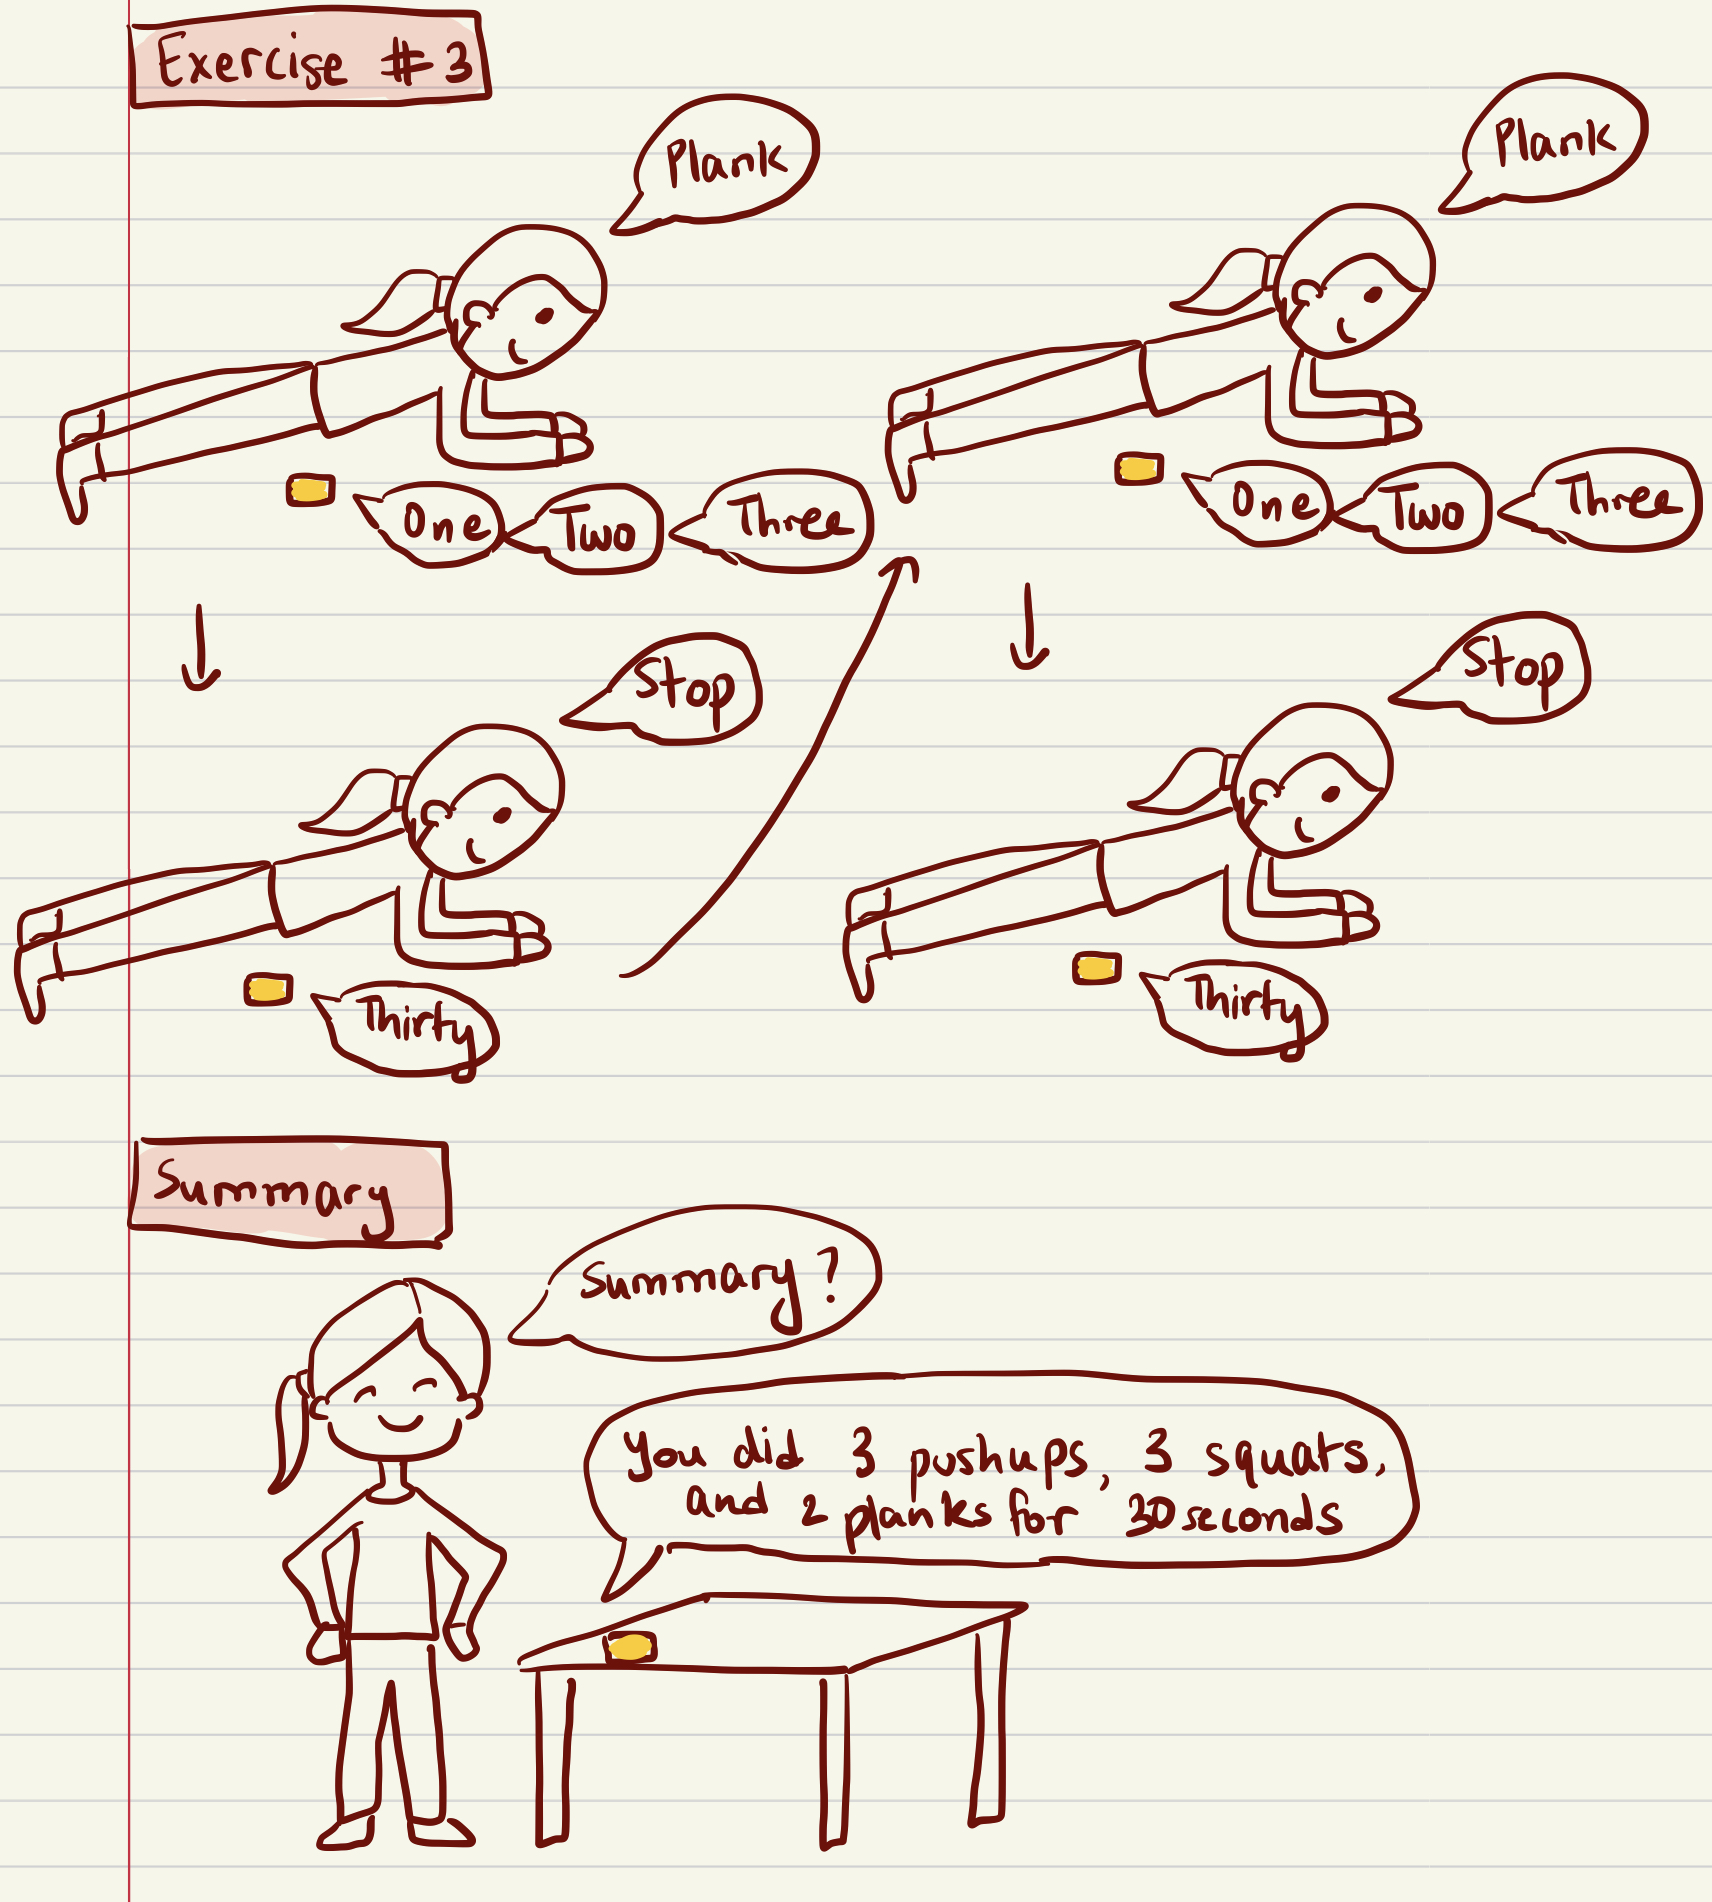 Exercise #3
Plank
One
Two
Three
Stop
Thirty
Plank
One
Two
Three
Stop
Thirty
Summary
Summary?
You did 3 pushups, 3 squats,
and 2 planks for 30 seconds